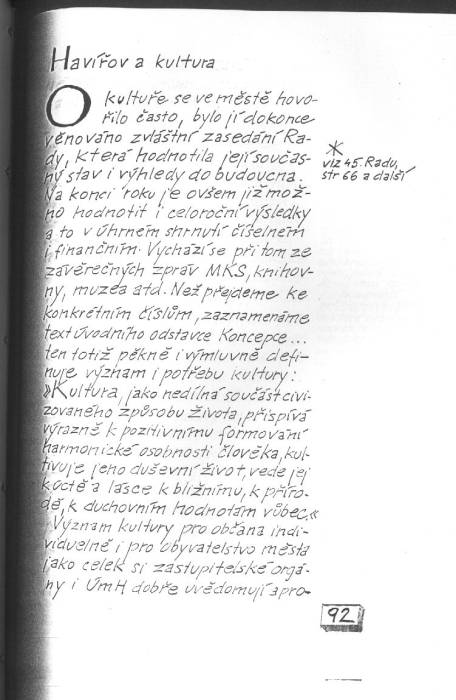 Havířov a kultura
O kultuře se ve městě hovo-
řilo často, bylo jí dokonce
věnováno zvláštní zasedání Ra-
dy, která hodnotila její součas-
ný stav i výhledy do budoucna.
Na konci roku je ovšem již mož-
no hodnotit i celoroční výsledky
a to v úhrném shrnutí číselném
i finančním. Vychází se při tom ze
závěrečných zpráv MKS, knihov-
ny, muzea atd. Než přejdeme ke
konkrétním číslům, zaznamenáme
text úvodního odstavce Koncepce...
ten totiž pěkně i výmluvně defi-
nuje význam i potřebu kultury:
»Kultura, jako nedílná součást civi-
lizovaného způsobu života, přispívá
výrazně k pozitivnímu formování
harmonické osobnosti člověka, kul-
tivuje jeho duševní život, vede jej
k úctě a lásce k bližnímu, k příro-
dě, k duchovním hodnotám vůbec.«
Význam kultury pro občana indi-
viduelně i pro obyvatelstvo města
jako celek si zastupitelské orgá-
ny i ÚmH dobře uvědomují a pro-
*
viz 45. Radu,
str 66 a další
92